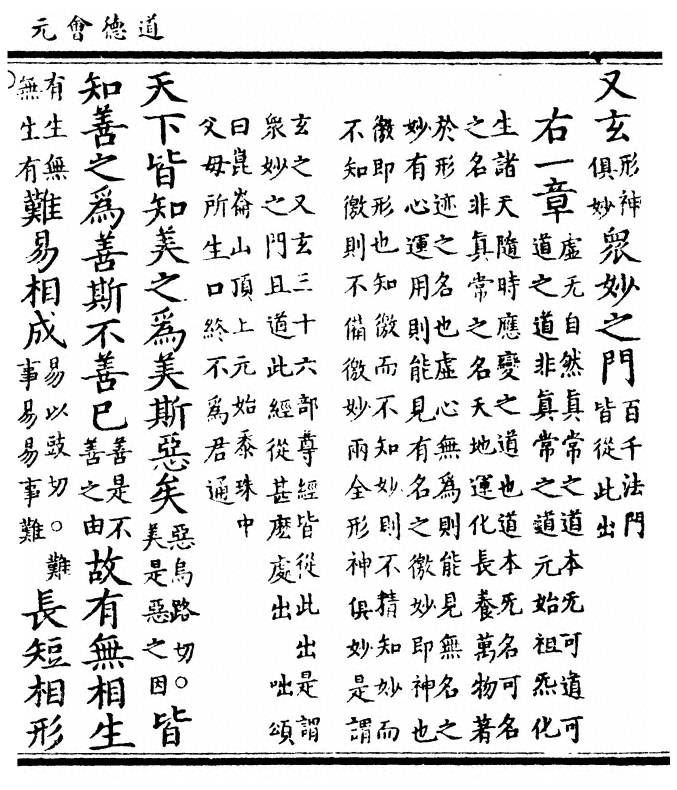 道德會元
又玄形神俱妙衆妙之門百千法門皆從此出
右一章虛无自然真常之道本无可道可
道之道非真常之道元始祖炁化
生諸天隨時應變之道也道本无名可名
之名非真常之名天地運化長養萬物著
於形迹之名也虛心無爲則能見無名之
妙有心運用則能見有名之徼妙即神也
徼即形也知徼而不知妙則不精知妙而
不知徼則不備徼妙兩全形神俱妙是謂
玄之又玄三十六部尊經皆從此出是謂
衆妙之門且道此經從甚麽處出 咄頌
曰崑崙山頂上元始黍珠中
父母所生口終不爲君通
天下皆知美之爲美斯惡矣惡烏路切○美是惡之因皆
知善之爲善斯不善已善是不善之由故有無相生
有生無無生有難易相成易以豉切○難事易易事難長短相形